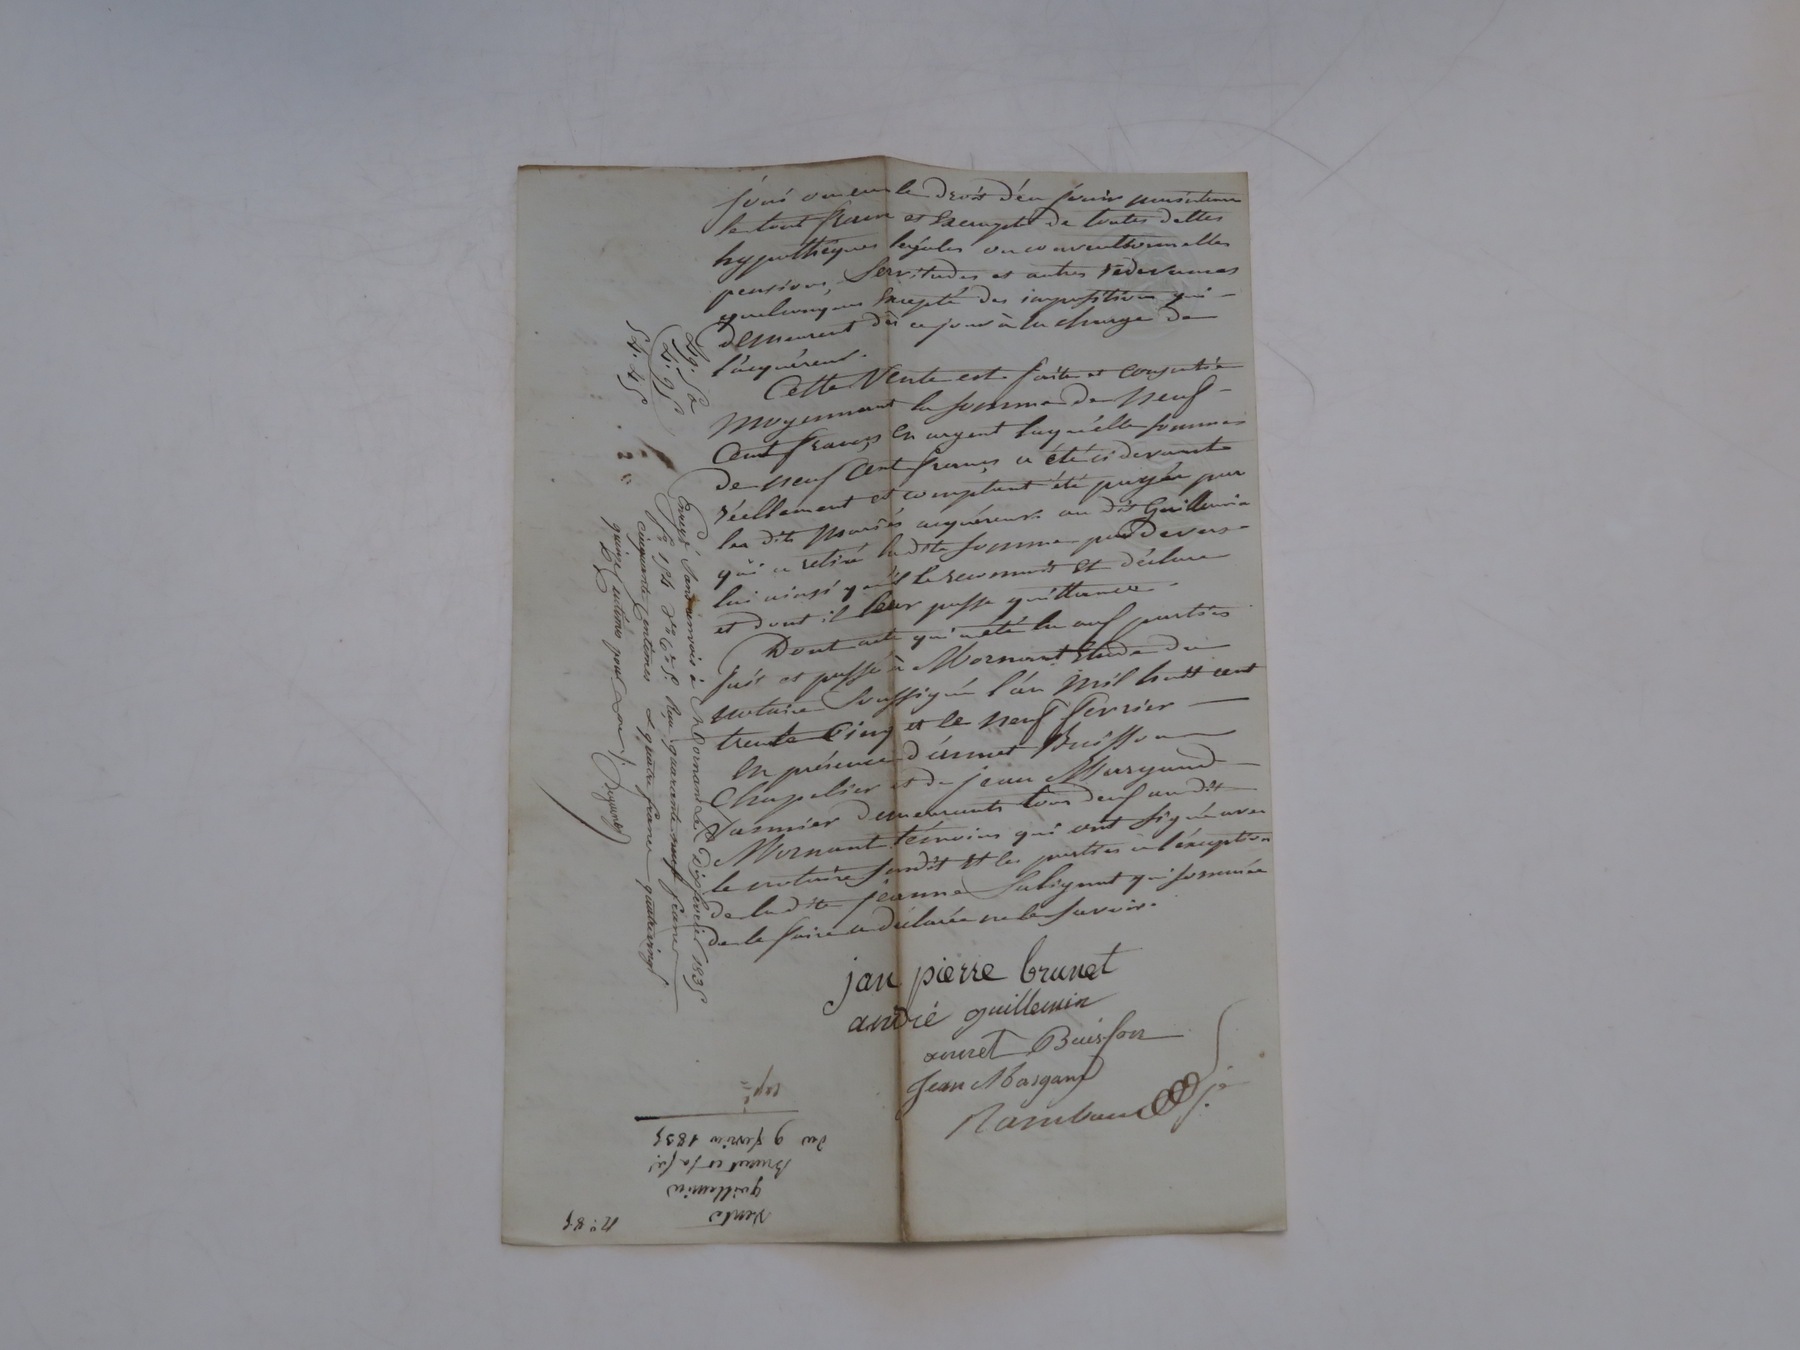 joui ou eu le droit d'en jouir
le tout franc et exempte de toutes dettes
hypothèques légales ou conventionnelles
pensions, servitudes et autres redevances
quelconques excepté des impositions qui
demeurent dès ce jour à la charge de
l'acquéreur.
Cette Vente est faite et
moyennant la somme de neuf
Cent francs en argent laquelle somme
de neuf cent francs a été ci devant
réellement et comptant été payée par
les dits mariés acquéreurs au dit Guillemin
qui a retiré la dite somme par devers
lui ainsi qu'il le reconnait et déclare
et dont il leur passe quittance.
Dont acte qui a été lu aux parties
fait et passé à Mornant Etude du
notaire soussigné l'an mil huit cent
trente cinq et le neuf février
En présence d'annet Buisson
Chapelier et de jean Margand
demeurants tous deux au dit
Mornant témoins qui ont signé avec
le notaire susdit et les parties à l'exception
de la dite jeanne qui sommée
de le faire a déclarée ne le savoir.
jan pierre brunet
andré guillemin
annet Buisson
Jean Margand
Rambaud
49. 50
4. 95
54. 45
Enregé sans renvois à Mornant le Dix février 1835
fo 184 Ro Reçu quarante neuf francs
cinquante centimes & quatre francs quatrevingt
quinze centimes pour
No 85
Vente
guillemin
Brunet et sa fe
du 9 fevrier 1835